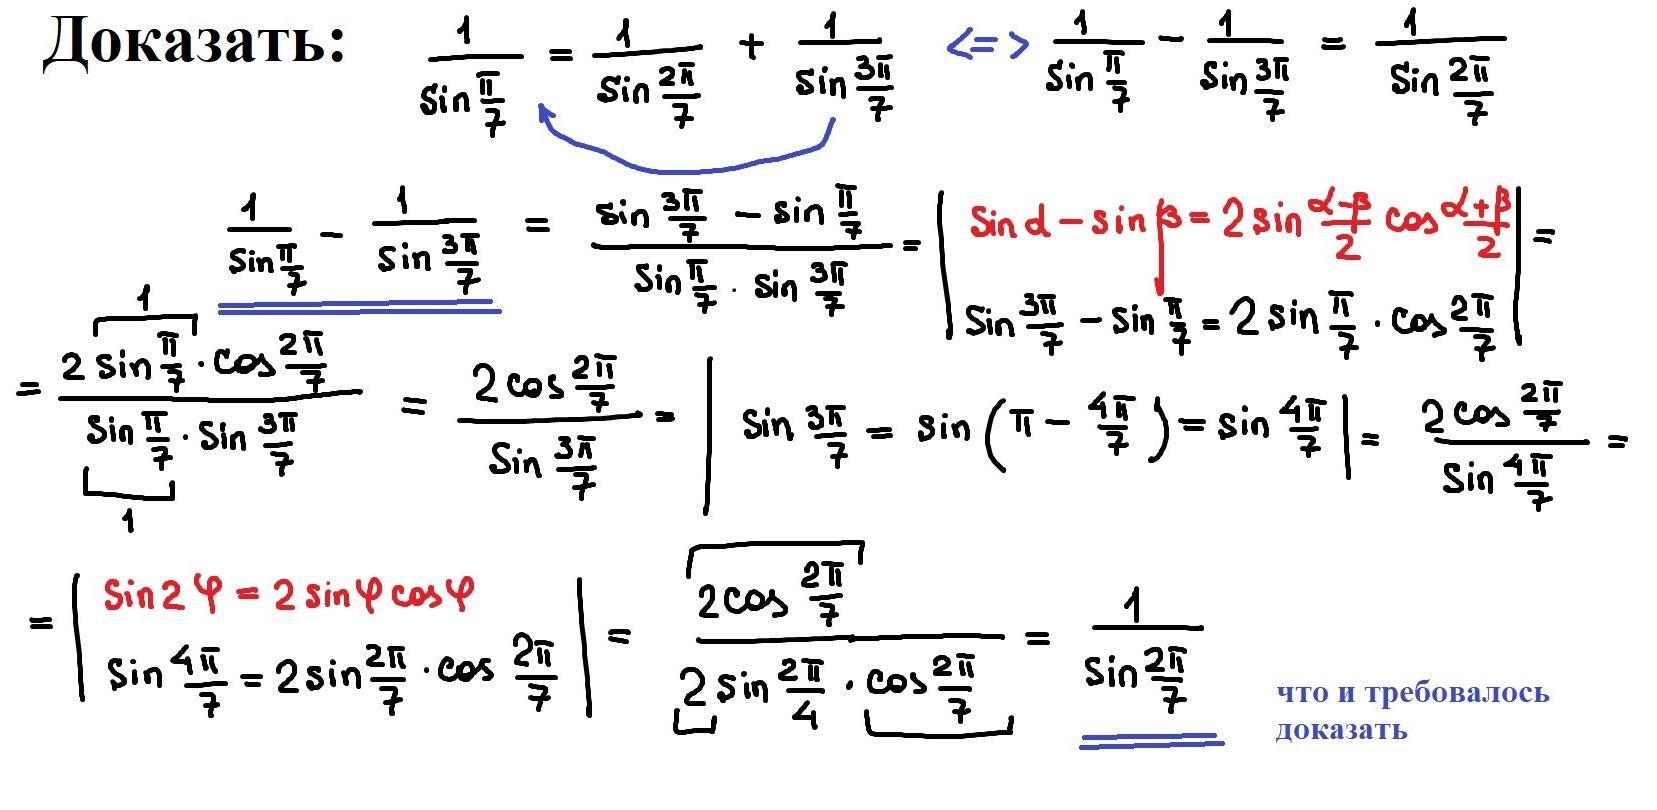 Доказать: 1/sin π/7 = 1/sin 2π/7 + 1/sin 3π/7 <=> 1/sin π/7 − 1/sin 3π/7 = 1/sin 2π/7
1/sin π/7 − 1/sin 3π/7 = (sin 3π/7 − sin π/7)/(sin π/7 · sin 3π/7) = | sin α − sin β = 2 sin (α−β)/2 cos (α+β)/2 | =
sin 3π/7 − sin π/7 = 2 sin π/7 · cos 2π/7
1
= (2 sin π/7 · cos 2π/7)/(sin π/7 · sin 3π/7) = (2 cos 2π/7)/(sin 3π/7) = | sin 3π/7 = sin (π − 4π/7) = sin 4π/7 | = (2 cos 2π/7)/(sin 4π/7) =
1
= | sin 2φ = 2 sin φ cos φ | = (2 cos 2π/7)/(2 sin 2π/4 · cos 2π/7) = 1/sin 2π/7
sin 4π/7 = 2 sin 2π/7 · cos 2π/7
что и требовалось
доказать